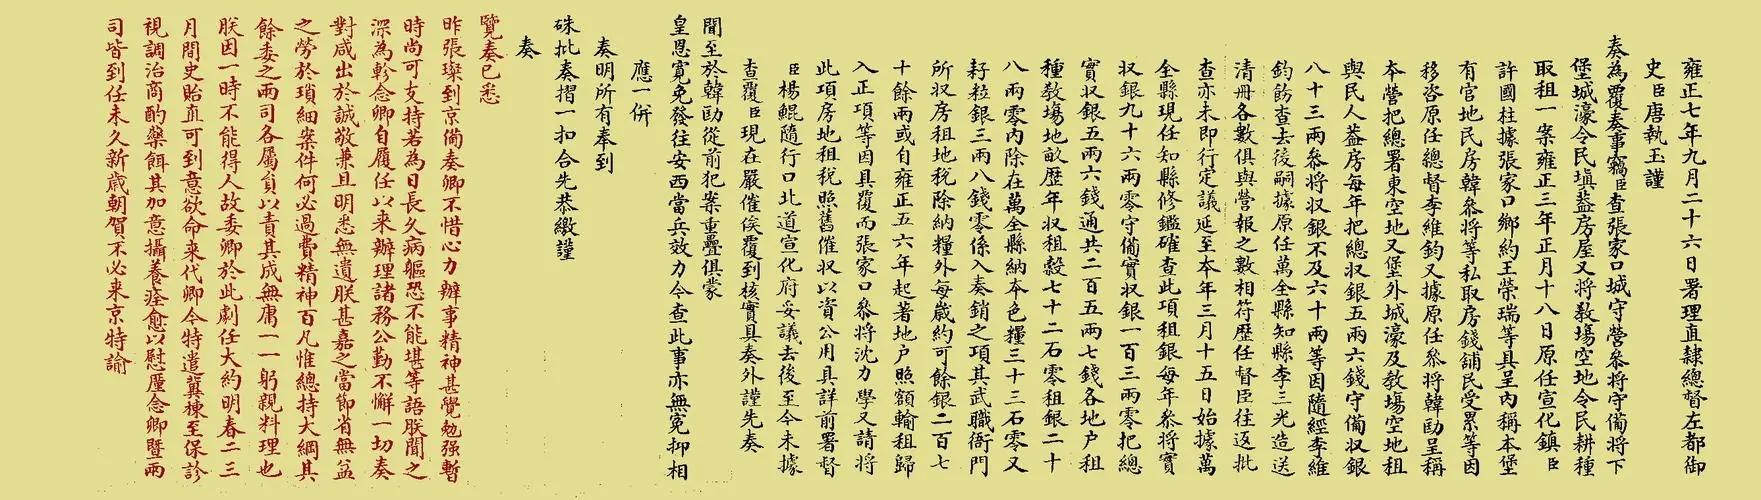 雍正七年九月二十六日署理直隸總督左都御
史臣唐執玉謹
奏為覆奏事竊臣查張家口城守營叅將守備將下
堡城濠令民填蓋房屋又將教場空地令民耕種
取租一案雍正三年正月十八日原任宣化鎮臣
許國柱據張家口鄉約王榮瑞等具呈內稱本堡
有官地民房韓叅將等私取房錢舖民受累等因
移咨原任總督李維鈞又據原任叅將韓勖呈稱
本營把總署東空地又堡外城濠及教場空地租
與民人蓋房每年把總收銀五兩六錢守備收銀
八十三兩叅將收銀不及六十兩等因隨經李維
鈞飭查去後嗣據原任萬全縣知縣李三光造送
清冊各數俱與營報之數相符歷任督臣往返批
查亦未即行定議延至本年三月十五日始據萬
全縣現任知縣修鑑確查此項租銀每年叅將實
收銀九十六兩零守備實收銀一百三兩零把總
實收銀五兩六錢通共二百五兩七錢各地户租
種教塲地畝歷年收租穀七十二石零租銀二十
八兩零內除在萬全縣納本色糧三十三石零又
耔粒銀三兩八錢零係入奏銷之項其武職衙門
所收房租地稅除納糧外每歲約可餘銀二百七
十餘兩或自雍正五六年起著地户照額輸租歸
入正項等因具覆而張家口叅將沈力學又請將
此項房地租稅照舊催収以資公用具詳前署督
臣楊鯤隨行口北道宣化府妥議去後至今未據
查覆臣現在嚴催俟覆到核實具奏外謹先奏
聞至於韓勖從前犯案重疊俱蒙
皇恩寬免發往安西當兵效力今查此事亦無冤抑相
應一併
奏明所有奉到
硃批奏摺一扣合先恭繳謹
奏
覽奏已悉
昨張璨到京備奏卿不惜心力辦事精神甚覺勉强暫
時尚可支持若為日長久病軀恐不能堪等語朕聞之
深為軫念卿自履任以来辦理諸務公勤不懈一切奏
對咸出於誠敬兼且明悉無遺朕甚嘉之當節省無益
之勞於瑣細案件何必過費精神百凡惟總持大綱其
餘委之兩司各屬負以責其成無庸一一躬親料理也
朕因一時不能得人故委卿於此劇任大約明春二三
月間史貽直可到意欲命来代卿今特遣冀棟至保診
視調治商酌藥餌其加意攝養痊愈以慰廑念卿暨兩
司皆到任未久新歲朝賀不必来京特諭